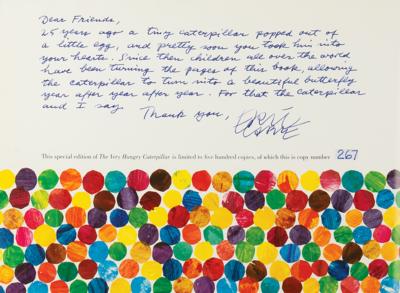 Dear Friends,
25 years ago a tiny caterpillar popped out of
a little egg, and pretty soon you took him into
your hearts. Since then children all over the world
have been turning the pages of this book, allowing
the caterpillar to turn into a beautiful butterfly
year after year after year. For that the caterpillar
and I say
Thank you,
Eric Carle
This special edition of The Very Hungry Caterpillar is limited to five hundred copies, of which this is copy number 267